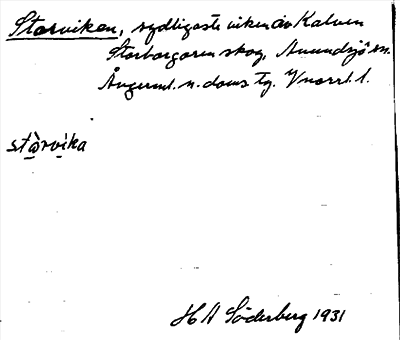 Storviken, sydligaste viken av Kalven
Storborgaren skog, Anundsjö sn.
Ångerml. n. doms tg. Vnorrl. l.
stàrvika
H A Söderberg 1931